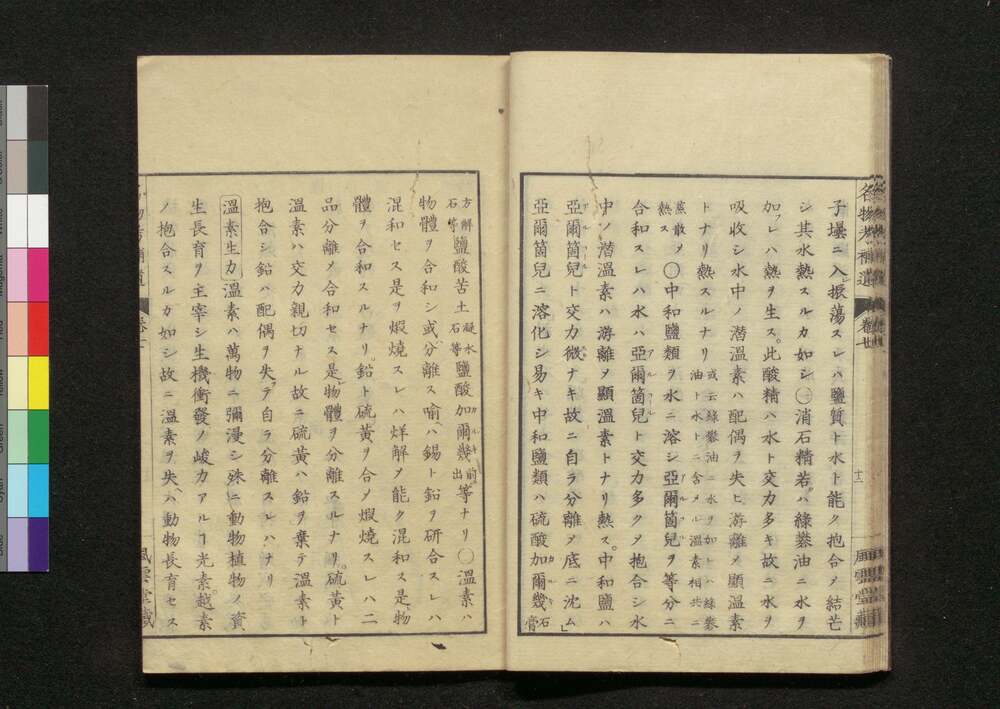 名物考補遺 卷廿 十二 風雲堂藏
子壜ニ入レ振蕩スレハ鹽質ト水ト能ク抱合メ結芒
シ其水熱スルカ如シ○消石精若ハ綠礬油ニ水ヲ
加フレハ熱ヲ生ス此酸精ハ水ト交力多キ故ニ水ヲ
吸收シ水中ノ潜溫素ハ配偶ヲ失ヒ游離メ顯溫素
トナリ熱スルナリ 或云綠礬油ニ水ヲ加レハ綠礬油ト水トニ含メル溫素相共ニ
蒸散メ熱ス ○中和鹽類ヲ水ニ溶シ亞爾箇兒ヲ等分ニ
合和スレハ水ハ亞爾箇兒ト交力多クメ抱合シ水
中ノ潜溫素ハ游離メ顯溫素トナリ熱ス中和鹽ハ
亞爾箇兒ト交力微ナキ故ニ自ラ分離メ底ニ沈ム
亞爾箇兒ニ溶化シ易キ中和鹽類ハ硫酸加爾幾 石膏
方解石等 鹽酸苦土 凝水石等 鹽酸加爾幾 前出 等ナリ○溫素ハ
物體ヲ合和シ或分離ス喻ハ錫ト鉛ヲ研合スレハ
混和セス是ヲ煆燒スレハ烊解メ能ク混和ス是物
體ヲ合和スルナリ鉛ト硫黃ヲ合メ煆燒スレハ二
品分離メ合和セス是物體ヲ分離スルナリ硫黃ト
溫素ハ交力親切ナル故ニ硫黃ハ鉛ヲ棄テ溫素ト
抱合シ鉛ハ配偶ヲ失テ自ラ分離スレハナリ
溫素生力 溫素ハ萬物ニ彌漫シ殊ニ動物植物ノ資
生長育ヲ主宰シ生機衝發ノ峻力アルヿ光素越素
ノ抱合スルカ如シ故ニ溫素ヲ失ハ動物長育セス
風雲堂藏